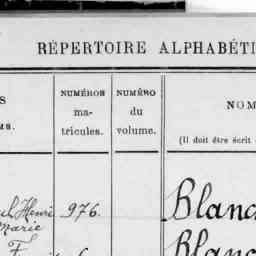 RÉPERTOIRE ALPHABÉTI
S
MS.
NUMÉROS
ma-
tricules.
NUMÉRO
du
volume.
NOM
(Il doit être écrit
Henri
Marie
976.
Blanc
Blanc